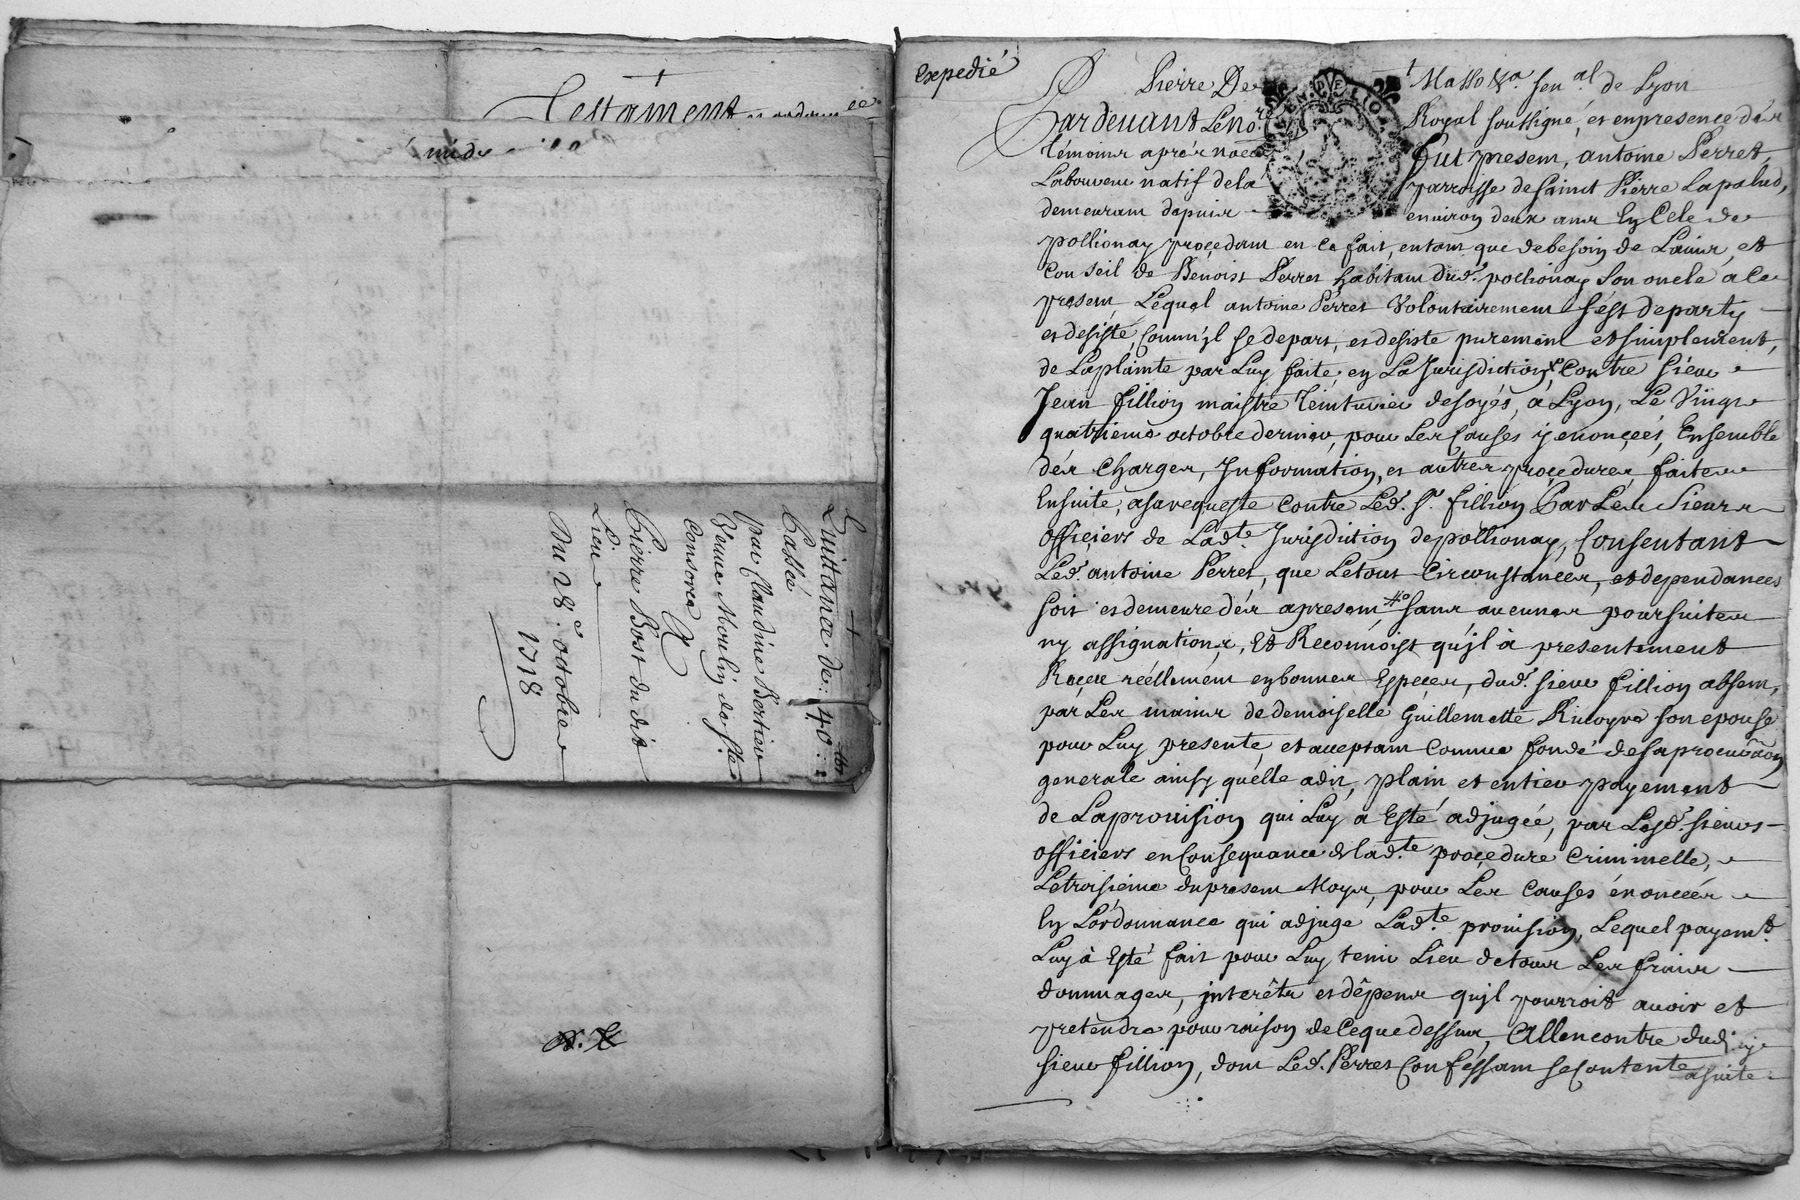 Testament
Quittance de: 40: ℔
Passée
par Claudine Bertier
Veuve Moulin doste
Consorce
A
Pierre Bost dudit
Lieu
Du 28.e octobre
1718
Expedié
Pierre De Masso &a. sen.al de Lyon
Pardevant Le no.re Royal soussigné, et en presence des
témoins apres
fut present, antoine Perret,
Laboureur natif de la parroisse de saint Pierre Lapalud,
demeurant depuis environ deux ans En Cele de
pollionay procedant en ce fait, entant que de besoin de Lavis, et
Conseil de Benoist Perret habitant dud.t pollionay son oncle a ce
present, Lequel antoine Perret Volontairement s'est departy
et desisté, comm'jl se depart, et desiste purement et simplement,
de La plainte par Luy faite, en La Jurisdiction, Contre sieur
Jean fillion maistre teinturier de soyes, a Lyon, Le Vingt
quatrieme octobre dernier, pour Les Causes y enoncées, Ensemble
des Charges, Information, et autres procedures, faites
Ensuite, a sa requeste contre Led. s.r fillion Par Les Sieurs
officiers de Lad.te Jurisdiction de pollionay, Consentant
Led. antoine Perret, que Le tout Circonstances, et dependances
soit et demeure des apresent sans aucunes poursuites
ny assignations, Et Reconnoist qu'jl à presentement
Receu réellement en bonnes Especes, dud. sieur fillion absent,
par Les mains de demoiselle Guillemette son epouse
pour Luy presente, et acceptant comme fondé de sa procuration
generale ainsy qu'elle a dit, plain et entier payement
de La provision qui Luy a Esté adjugée, par Lesd. sieurs
officiers en Consequance de lad.te procedure Criminelle,
Le troisieme du present Moys, pour Les causes énoncées
En L'ordonnance qui adjuge Lad.te provision, Lequel payem.t
Luy à Esté fait pour Luy tenir Lieu de tous Les frais
dommages, jnterêts et dépens qu'jl pourroit avoir et
pretendre pour raison de Ce que dessus, Allencontre dud.
sieur fillion, dont Led. Perret Confessant se Contente